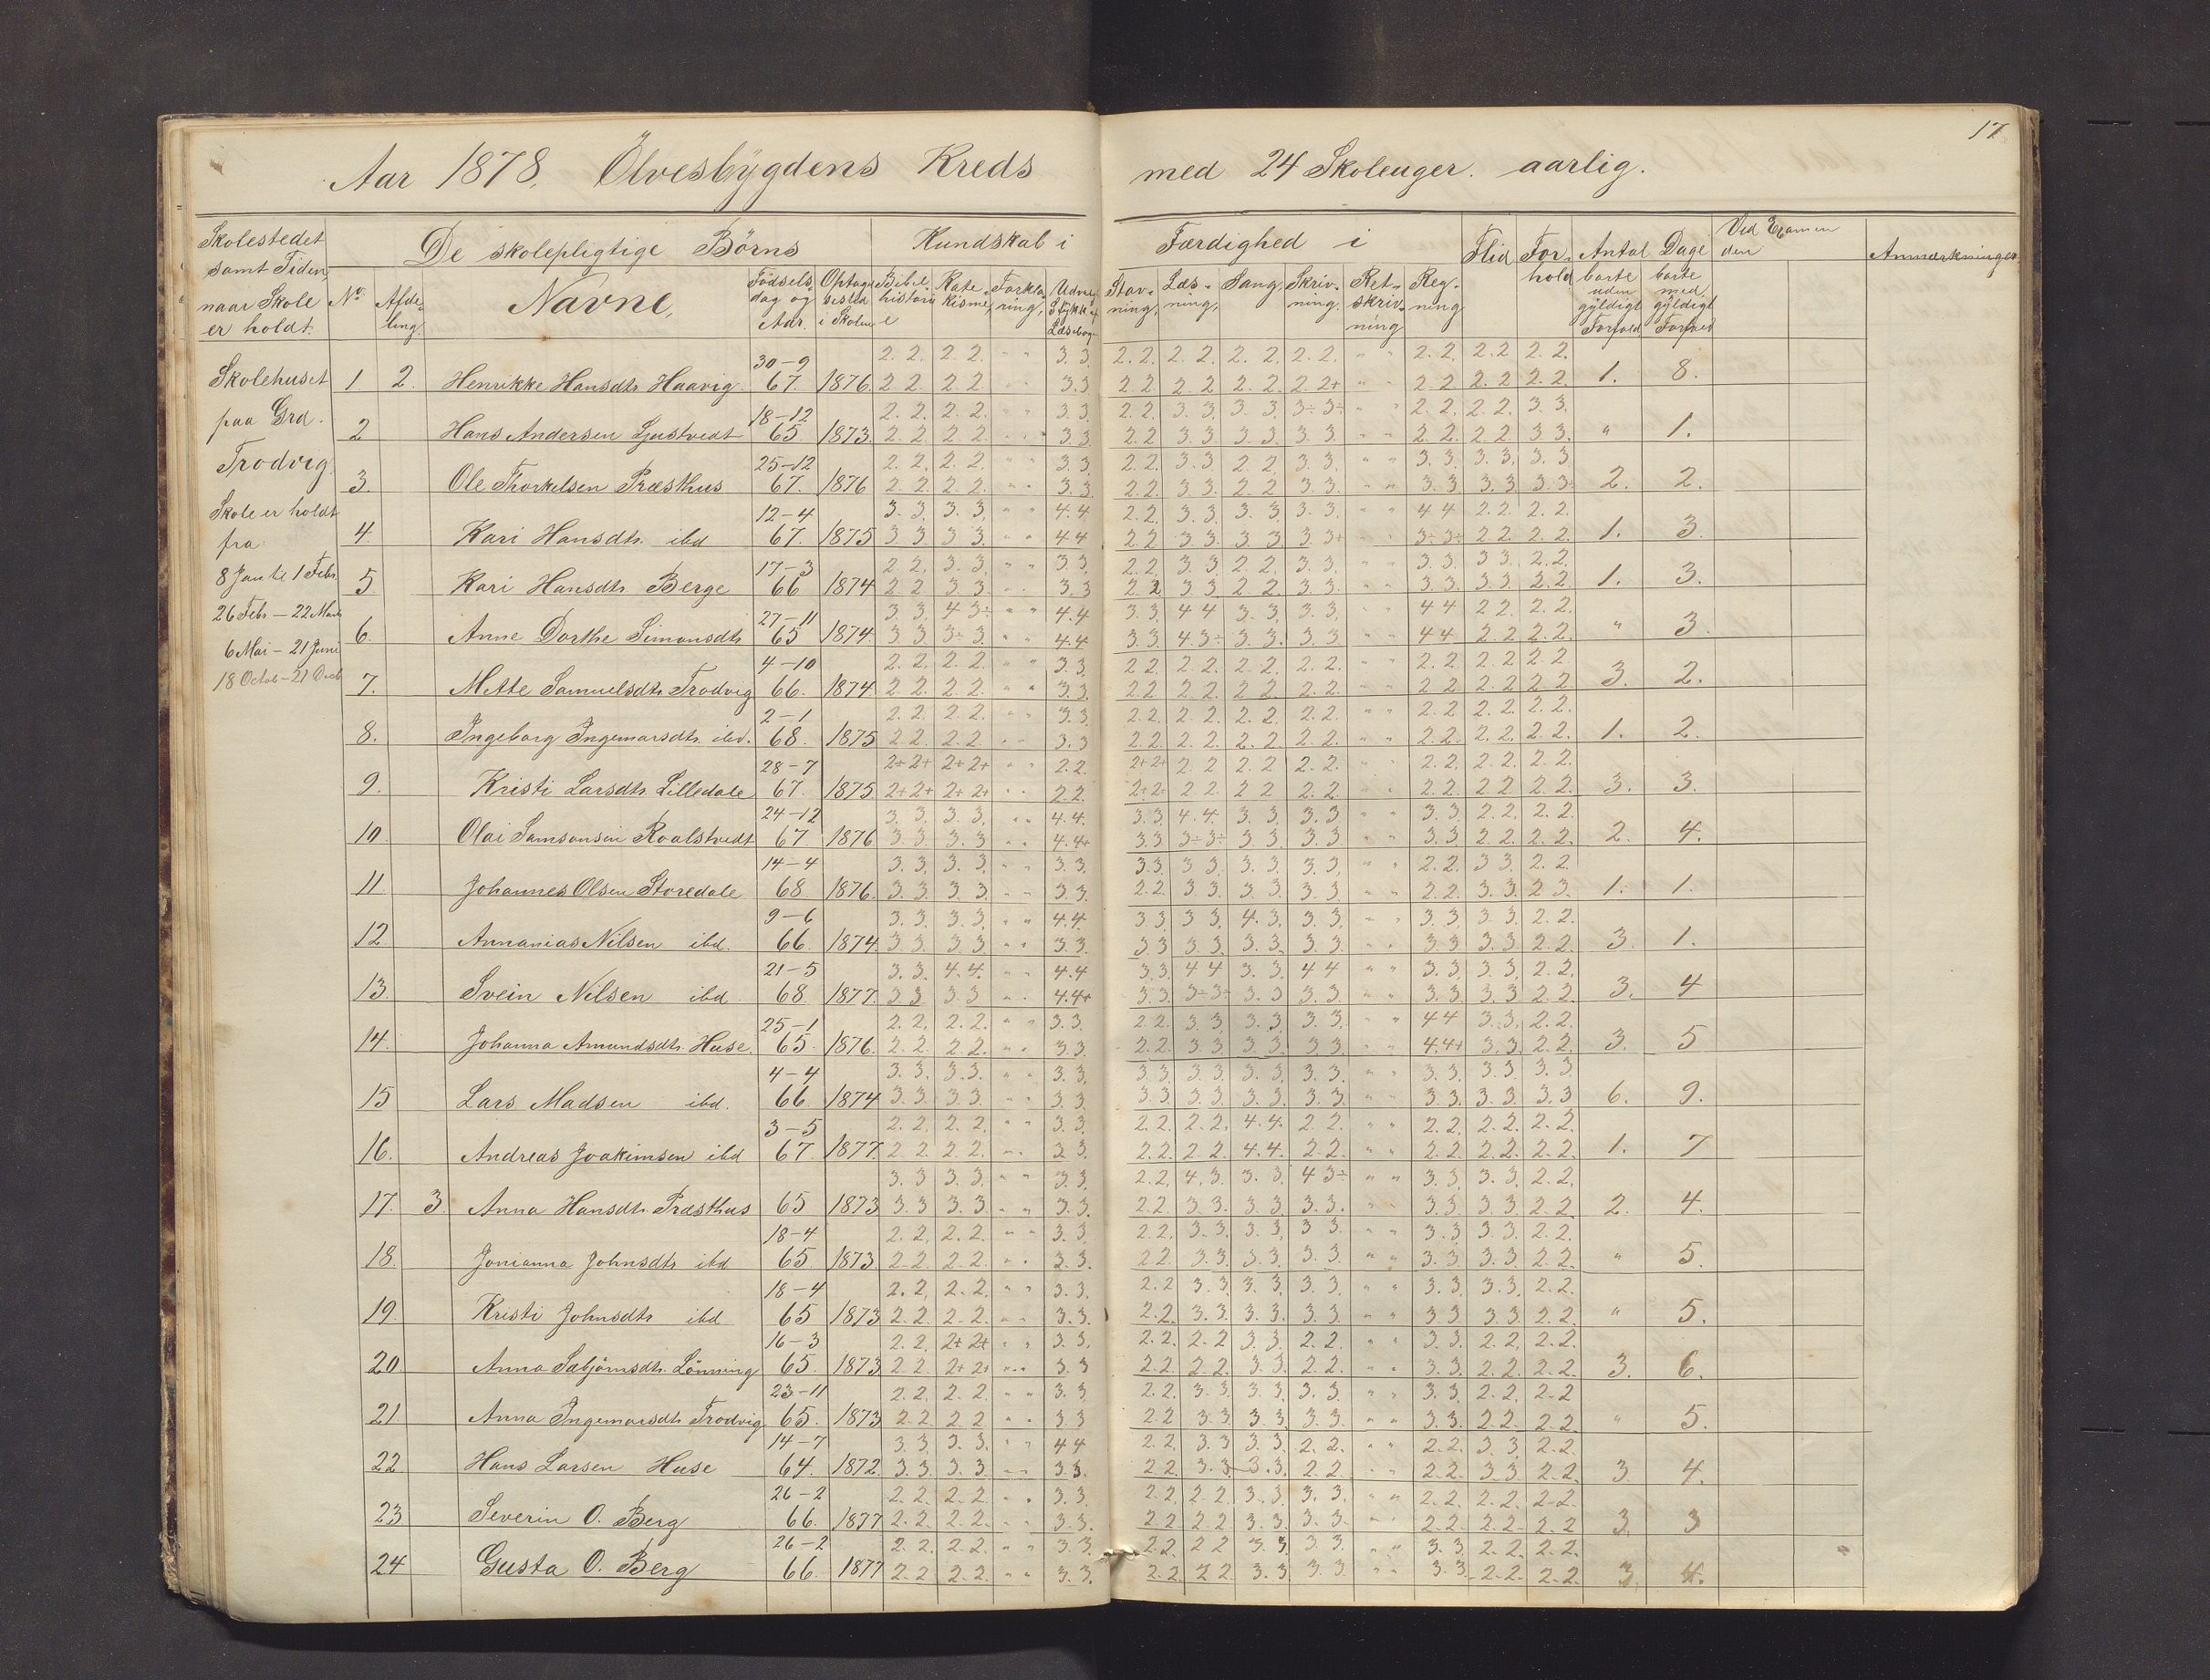 17
Aar 1878. Ölvesbygdens Kreds med 24 Skoleuger aarlig.
Skolestedet samt Tiden, naar Skole er holdt.
De skolepligtige Börns
Kundskab i
Færdighed i
Flid
Forhold
Antal Dage
Ved Examen den
Anmærkninger
No.
Afdeling
Navne,
Födselsdag og Aar.
Optagelsestid i Skolen
Bibelhistorie
Katekisme,
Forklaring,
Udvalgte Stykker af Læsebog
Stavning,
Læsning,
Sang
Skrivning.
Retskrivning
Regning
borte uden gyldigt Forfald
borte med gyldigt Forfald
Skolehuset
paa Grd.
Trodvig.
Skole er holdt
fra
8 Jan til 1 Febr.
26 Febr – 22 Marts
6 Mai – 21 Juni
18 Octob – 21 Decb
30–9 2. 2. 2 2. " " 3. 3. 2. 2. 2. 2. 2. 2. 2. 2. " " 2. 2. 2. 2 2. 2.
1 2. Henrikke Hansdtr Haavig 67. 1876. 2 2. 2 2 " " 3.3 2 2 2 2 2. 2. 2. 2+ " " 2 2 2. 2 2. 2. 1. 8.
18–12 2. 2. 2. 2. " " 3.3 2. 2 3. 3. 3. 3. 3÷ 3÷ " " 2. 2. 2. 2. 3. 3.
2 Hans Andersen Gjustvedt 65 1873. 2. 2. 2 2. " " 3.3 2. 2 3 3 3. 3. 3. 3. " " 2. 2. 2. 2 3 3. " 1.
25–12 2. 2. 2. 2. " " 3.3. 2. 2. 3. 3 2. 2. 3. 3. " " 3. 3. 3. 3. 3. 3
3. Ole Thorkelsen Præsthus 67. 1876 2. 2. 2 2. " " 3.3. 2. 2. 3 3. 2 2 3. 3. " " 3. 3 3. 3 3. 3. 2. 2.
12–4 3. 3. 3. 3. " " 4.4. 2. 2. 3. 3. 3. 3. 3. 3. " " 4 4 2 2. 2. 2.
4. Kari Hansdtr. ibd 67. 1875 3 3 3 3. " " 4 4 2. 2 3 3. 3 3 3. 3+ " " 3÷ 3÷ 2 2. 2. 2. 1. 3.
17–3 2 2. 3. 3. " " 3.3. 2 2. 3. 3 2. 2. 3. 3. " " 3. 3. 3 3 2. 2.
5 Kari Hansdtr. Berge 66 1874 2 2 3 3. " " 3.3 2. 2 3 3 2 2. 3 3. " " 3. 3. 3 3. 2. 2. 1. 3.
27–11 3 3. 4 3÷ " " 4.4 3. 3. 4 4 3. 3. 3. 3. " " 4 4 2 2. 2. 2.
6. Anne Dorthe Simonsdtr 65 1874. 3 3 3÷ 3. " " 4.4 3. 3. 4. 3÷ 3. 3. 3. 3 " " 4 4 2. 2 2. 2. " 3.
4–10 2. 2. 2. 2. " " 3.3 2 2. 2. 2. 2. 2. 2. 2. " " 2. 2. 2. 2 2. 2
7. Mette Samuelsdtr. Trodvig 66. 1874. 2. 2. 2. 2. " " 3.3. 2. 2. 2. 2. 2 2. 2. 2. " " 2 2 2. 2 2. 2 3. 2.
2–1 2. 2. 2. 2. " " 3.3. 2. 2. 2. 2. 2. 2. 2. 2. " " 2. 2 2. 2. 2. 2.
8. Ingeborg Ingemarsdtr. ibd. 68. 1875 2 2. 2. 2. " " 3.3 2. 2. 2. 2. 2. 2 2. 2. " " 2. 2. 2. 2. 2. 2. 1. 2.
28–7 2+ 2+ 2+ 2+ " " 2.2. 2+ 2+ 2. 2 2. 2 2. 2. " " 2. 2. 2. 2. 2. 2.
9. Kristi Larsdtr. Lilledale 67. 1875 2+ 2+ 2+ 2+ " " 2.2. 2+ 2+ 2 2. 2 2 2. 2. " " 2. 2. 2 2 2. 2. 3. 3.
24–12 3. 3. 3. 3. " " 4.4. 3. 3 4. 4. 3. 3. 3. 3 " " 3. 3. 2. 2. 2. 2.
10 Olai Samsonsen Roalstvedt 67 1876 3. 3. 3. 3 " " 4.4+ 3 3 3÷ 3÷ 3. 3 3. 3 " " 3. 3 2. 2. 2. 2. 2. 4.
14–4 3. 3. 3. 3. " " 3.3. 3. 3 3 3. 3. 3. 3. 3. " " 2. 2. 3 3 2. 2
11 Johannes Olsen Storedale 68 1876. 3. 3. 3 3. " " 3.3. 2. 2. 3 3. 3. 3 3. 3 " " 2 2. 3. 3. 2 3. 1. 1.
9–6 3. 3. 3. 3. " " 4.4. 3. 3. 3 3. 4. 3. 3. 3. " " 3. 3 3. 3. 2. 2.
12 Annanias Nilsen ibd. 66. 1874. 3 3. 3. 3 " " 3.3. 3 3 3. 3. 3. 3. 3. 3. " " 3. 3 3. 3 2. 2. 3. 1.
21–5 3. 3. 4. 4. " " 4.4 3. 3. 4 4 3. 3. 4 4 " " 3. 3 3. 3. 2. 2.
13. Svein Nilsen ibd. 68 1877. 3 3 3 3 " " 4.4+ 3. 3. 3÷ 3÷ 3. 3 3. 3. " " 3. 3. 3. 3 2 2. 3. 4
25–1 2. 2. 2. 2. " " 3.3. 2. 2. 3. 3. 3. 3. 3. 3. " " 4 4 3. 3. 2. 2.
14. Johanna Amundsdtr. Huse. 65. 1876. 2. 2. 2 2. " " 3.3. 2. 2. 3 3 3. 3. 3 3. " " 4.4+ 3. 3. 2. 2. 3. 5
4–4 3. 3. 3. 3. " " 3.3. 3. 3. 3. 3. 3. 3. 3. 3. " " 3. 3. 3. 3 3. 3
15 Lars Madsen ibd. 66 1874 3. 3. 3 3. " " 3.3. 3. 3 3 3. 3. 3. 3. 3. " " 3. 3. 3. 3. 3. 3 6. 9.
3–5 2. 2. 2. 2. " " 3.3. 2. 2. 2. 2. 4. 4. 2. 2. " " 2. 2. 2. 2. 2. 2.
16. Andreas Joakimsen ibd 67. 1877. 2. 2. 2. 2. " " 3.3. 2. 2. 2. 2. 4. 4. 2. 2. " " 2. 2. 2. 2. 2. 2. 1. 7
3. 3 3. 3. " " 3.3. 2. 2. 4. 3. 3. 3. 4 3÷ " " 3. 3. 3. 3. 2. 2.
17. 3. Anna Hansdtr. Præsthus 65 1873 3. 3 3. 3. " " 3.3. 2. 2. 3. 3. 3. 3. 3. 3. " " 3. 3. 3. 3 2 2. 2. 4.
18–4 2. 2. 2. 2. " " 3.3. 2. 2. 3. 3. 3. 3. 3 3. " " 3. 3 3 3. 2. 2.
18. Jonianna Johnsdtr ibd 65. 1873. 2. 2. 2. 2. " " 3.3. 2 2. 3. 3. 3. 3. 3. 3. " " 3. 3. 3. 3. 2 2. " 5.
18–4 2. 2. 2. 2. " " 3.3. 2. 2 3. 3. 3. 3. 3. 3. " " 3. 3. 3. 3. 2. 2.
19. Kristi Johnsdtr ibd 65 1873 2. 2. 2. 2. " " 3.3. 2. 2. 3. 3. 3. 3. 3 3. " " 3 3 3. 3. 2. 2. " 5.
16–3 2. 2. 2+ 2+ " " 3.3. 2. 2. 2. 2 3. 3. 2. 2. " " 3. 3 2. 2. 2. 2.
20 Anna Sæbjörnsdtr. Lönning 65. 1873 2. 2. 2+ 2+ " " 3.3 2. 2. 2. 2. 3. 3. 2. 2. " " 3. 3. 2. 2. 2. 2. 3. 6.
23–11 2. 2. 2. 2. " " 3.3. 2. 2. 3. 3. 3. 3. 3. 3. " " 3. 3 2. 2. 2. 2
21 Anna Ingemarsdtr. Trodvig 65. 1873 2. 2 2 2 " " 3.3 2. 2 3. 3. 3. 3. 3. 3. " " 3. 3. 2. 2. 2. 2 " 5.
14–7 3. 3. 3. 3. " " 4 4 2. 2. 3. 3 3. 3. 2. 2. " " 2. 2. 3. 3 2. 2.
22 Hans Larsen Huse 64. 1872. 3. 3. 3. 3. " " 3.3. 2. 2. 3. 3. 3. 3. 2 2. " " 2. 2. 3. 3 2. 2. 3. 4.
26–2 2. 2. 2. 2. " " 3.3. 2. 2. 2 2. 3. 3. 3. 3. " " 2. 2. 2. 2. 2. 2.
23 Severin O. Berg 66. 1877 2. 2. 2. 2. " " 3.3. 2. 2 2. 2 3. 3. 3. 3. " " 2. 2. 2. 2. 2. 2 3. 3
26–2 2. 2. 2. 2. " " 3.3. 2. 2. 2 2 3. 3 3. 3. " " 3. 3 2. 2. 2. 2.
24 Gusta O. Berg 66. 1877 2. 2 2. 2. " " 3.3. 2. 2. 2 2 3. 3 3. 3. " " 3. 3. 2. 2. 2. 2. 3. 4.